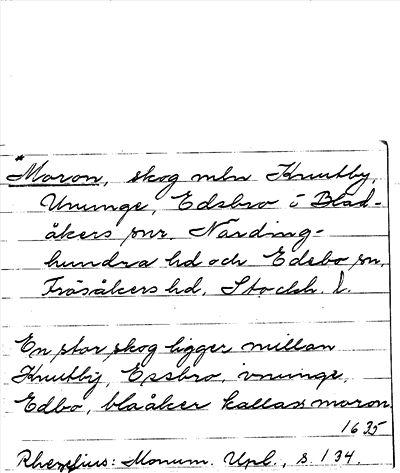 *Moron, skog mln Knutby,
Ununge, Edsbro o Blad-
åkers snr. Närding-
hundra hd och Edebo sn,
Frösåkers hd, Stockh. l.
En stor skog ligger millan
Knutby, Essbro, vnunge,
Edbo, blaåker kallas moron.
1635
Rhezelius: Monum. Upl., s. 134.